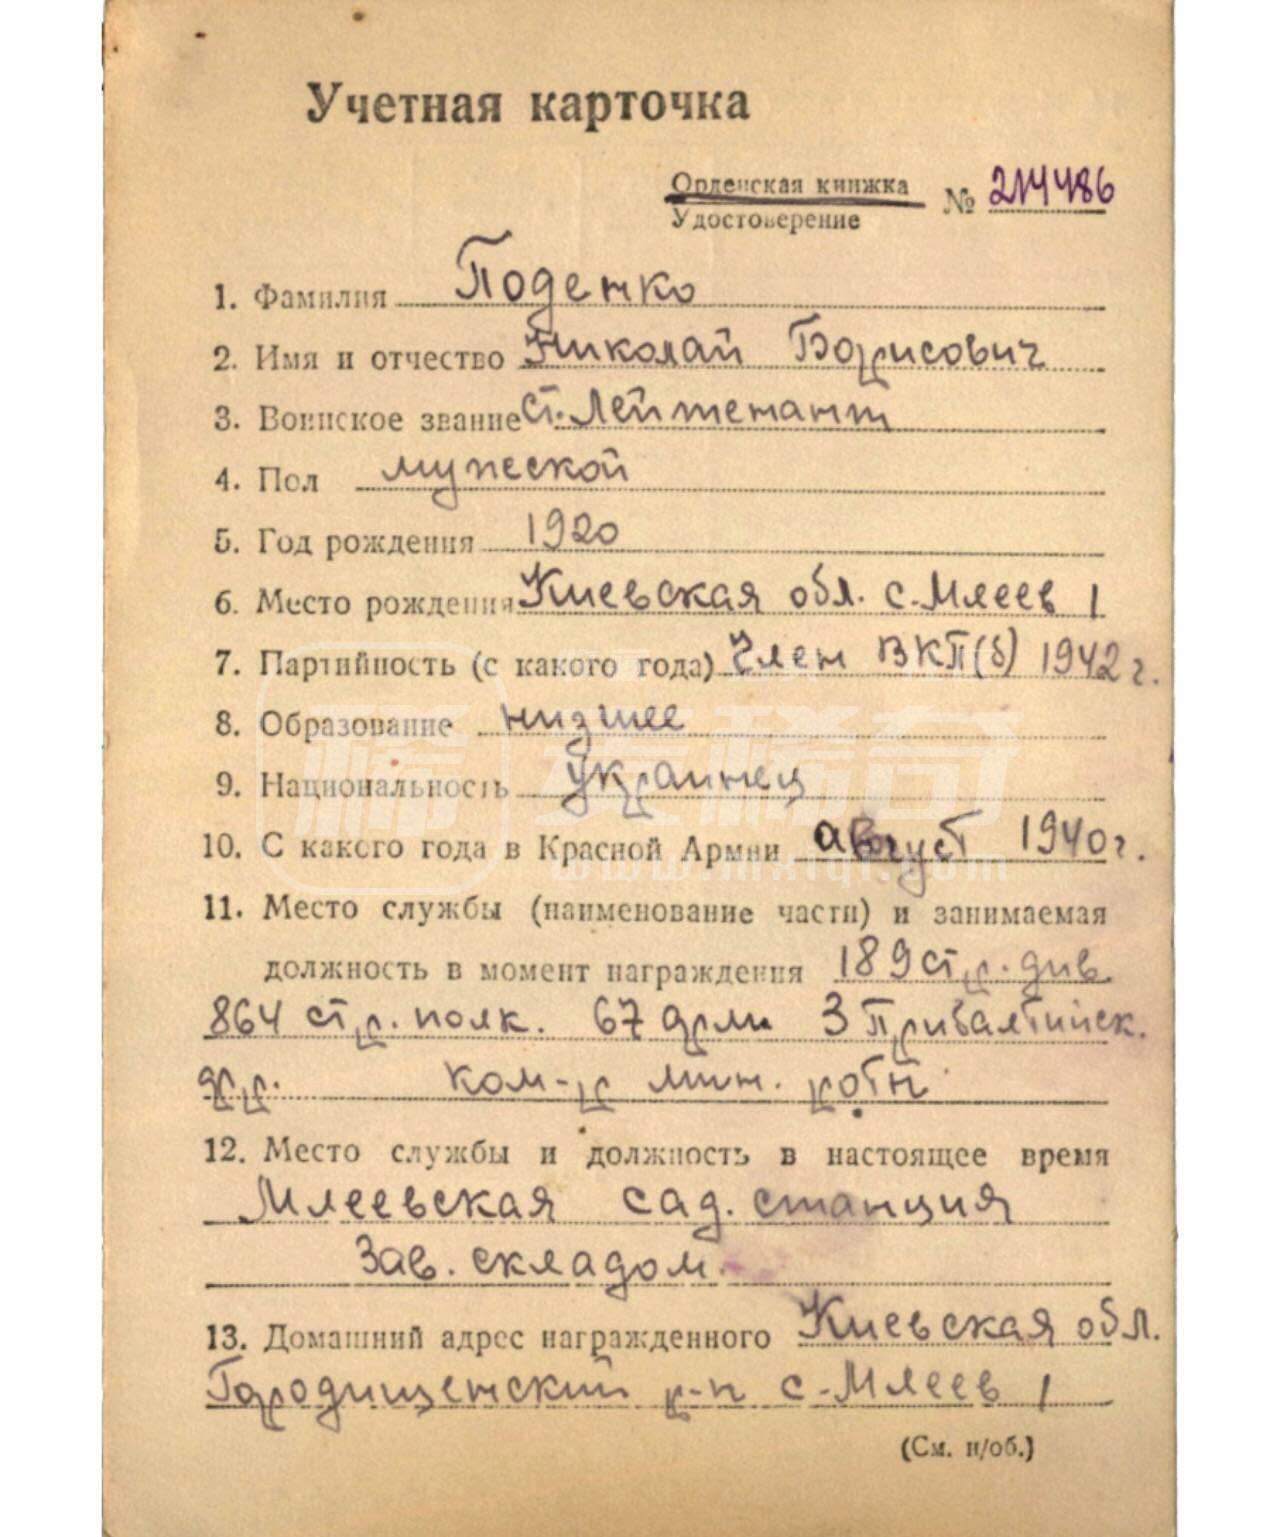 Учетная карточка
Орденская книжка № 214486
Удостоверение
1. Фамилия Поденко
2. Имя и отчество Николай Борисович
3. Воинское звание ст. Лейтенант
4. Пол мужской
5. Год рождения 1920
6. Место рождения Киевская обл. с. Млеев 1
7. Партийность (с какого года) Член ВКП(б) 1942 г.
8. Образование низшее
9. Национальность украинец
10. С какого года в Красной Армии август 1940 г.
11. Место службы (наименование части) и занимаемая
должность в момент награждения 189 стр. див.
864 стр. полк. 67 арм. 3 Прибалтийск.
фр. ком-р мин. роты
12. Место службы и должность в настоящее время
Млеевская сад. станция
Зав. складом.
13. Домашний адрес награжденного Киевская обл.
Городищенский р-н с. Млеев 1
(См. н/об.)